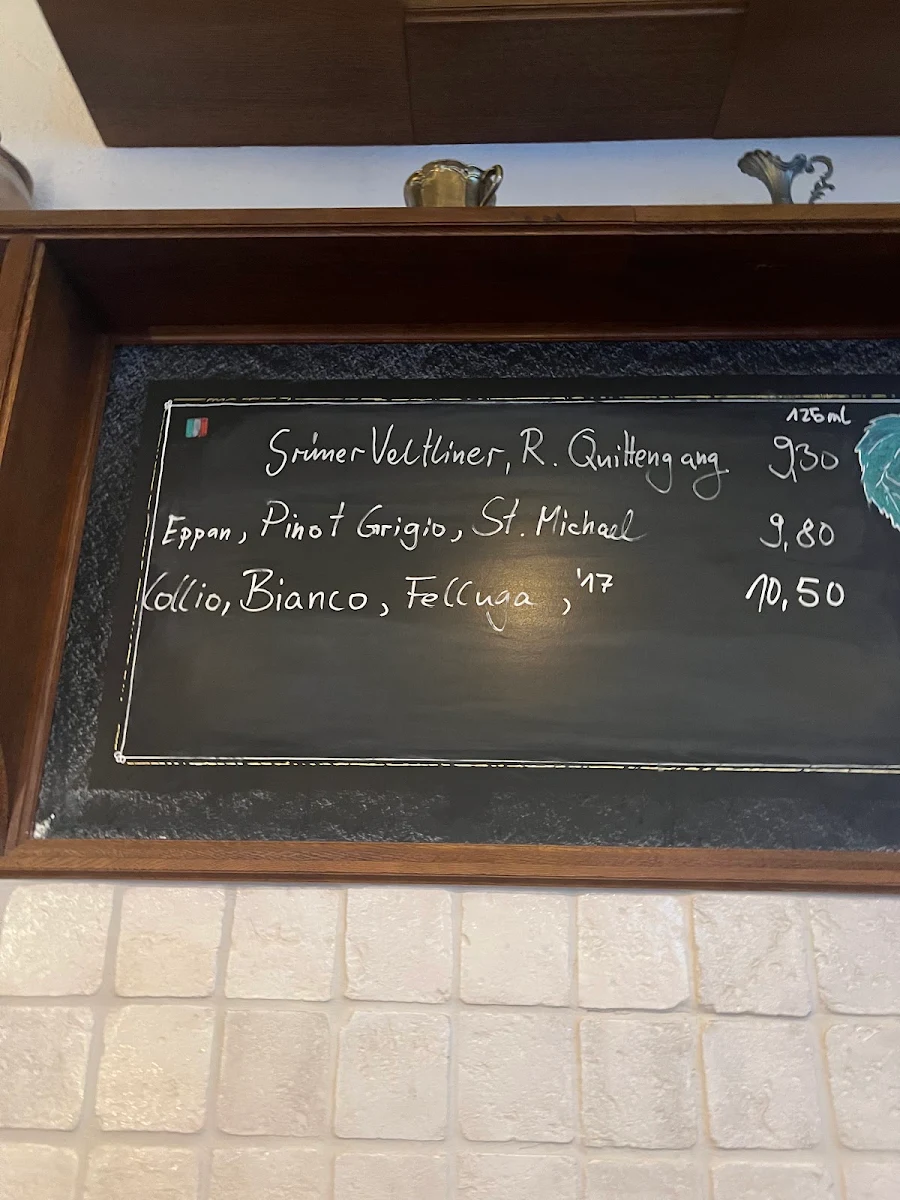 125ml
Grüner Veltliner, R. Quittengang 9,30
Eppan, Pinot Grigio, St. Michael 9,80
Collio, Bianco, Felluga, '17 10,50